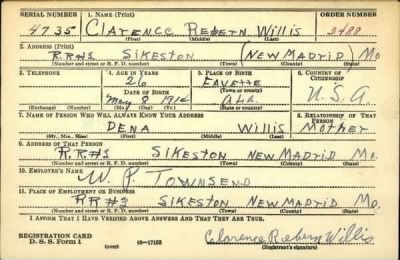 SERIAL NUMBER 1. NAME (Print) ORDER NUMBER
4735 CLARENCE REBERN WILLIS 3488
2. ADDRESS (Print)
R.R.#1 SIKESTON (NEW MADRID) MO.
(Number and street or R. F. D. number) (Town) (County) (State)
3. TELEPHONE 4. AGE IN YEARS 5. PLACE OF BIRTH 6. COUNTRY OF CITIZENSHIP
26 FAYETTE
DATE OF BIRTH (Town or county)
May 9 1914 ALA. U.S.A
(Exchange) (Number) (Mo.) (Day) (Yr.) (State or country)
7. NAME OF PERSON WHO WILL ALWAYS KNOW YOUR ADDRESS 8. RELATIONSHIP OF THAT PERSON
DENA WILLIS MOTHER
(Mr., Mrs., Miss) (First) (Middle) (Last)
9. ADDRESS OF THAT PERSON
R.R.#1 SIKESTON NEW MADRID MO.
(Number and street or R. F. D. number) (Town) (County) (State)
10. EMPLOYER'S NAME
W. P. TOWNSEND
11. PLACE OF EMPLOYMENT OR BUSINESS
RR #3 SIKESTON NEW MADRID MO.
(Number and street or R. F. D. number) (Town) (County) (State)
I AFFIRM THAT I HAVE VERIFIED ABOVE ANSWERS AND THAT THEY ARE TRUE.
REGISTRATION CARD
D. S. S. Form 1 (over) 16—17105 Clarence Rebern Willis
(Registrant's signature)